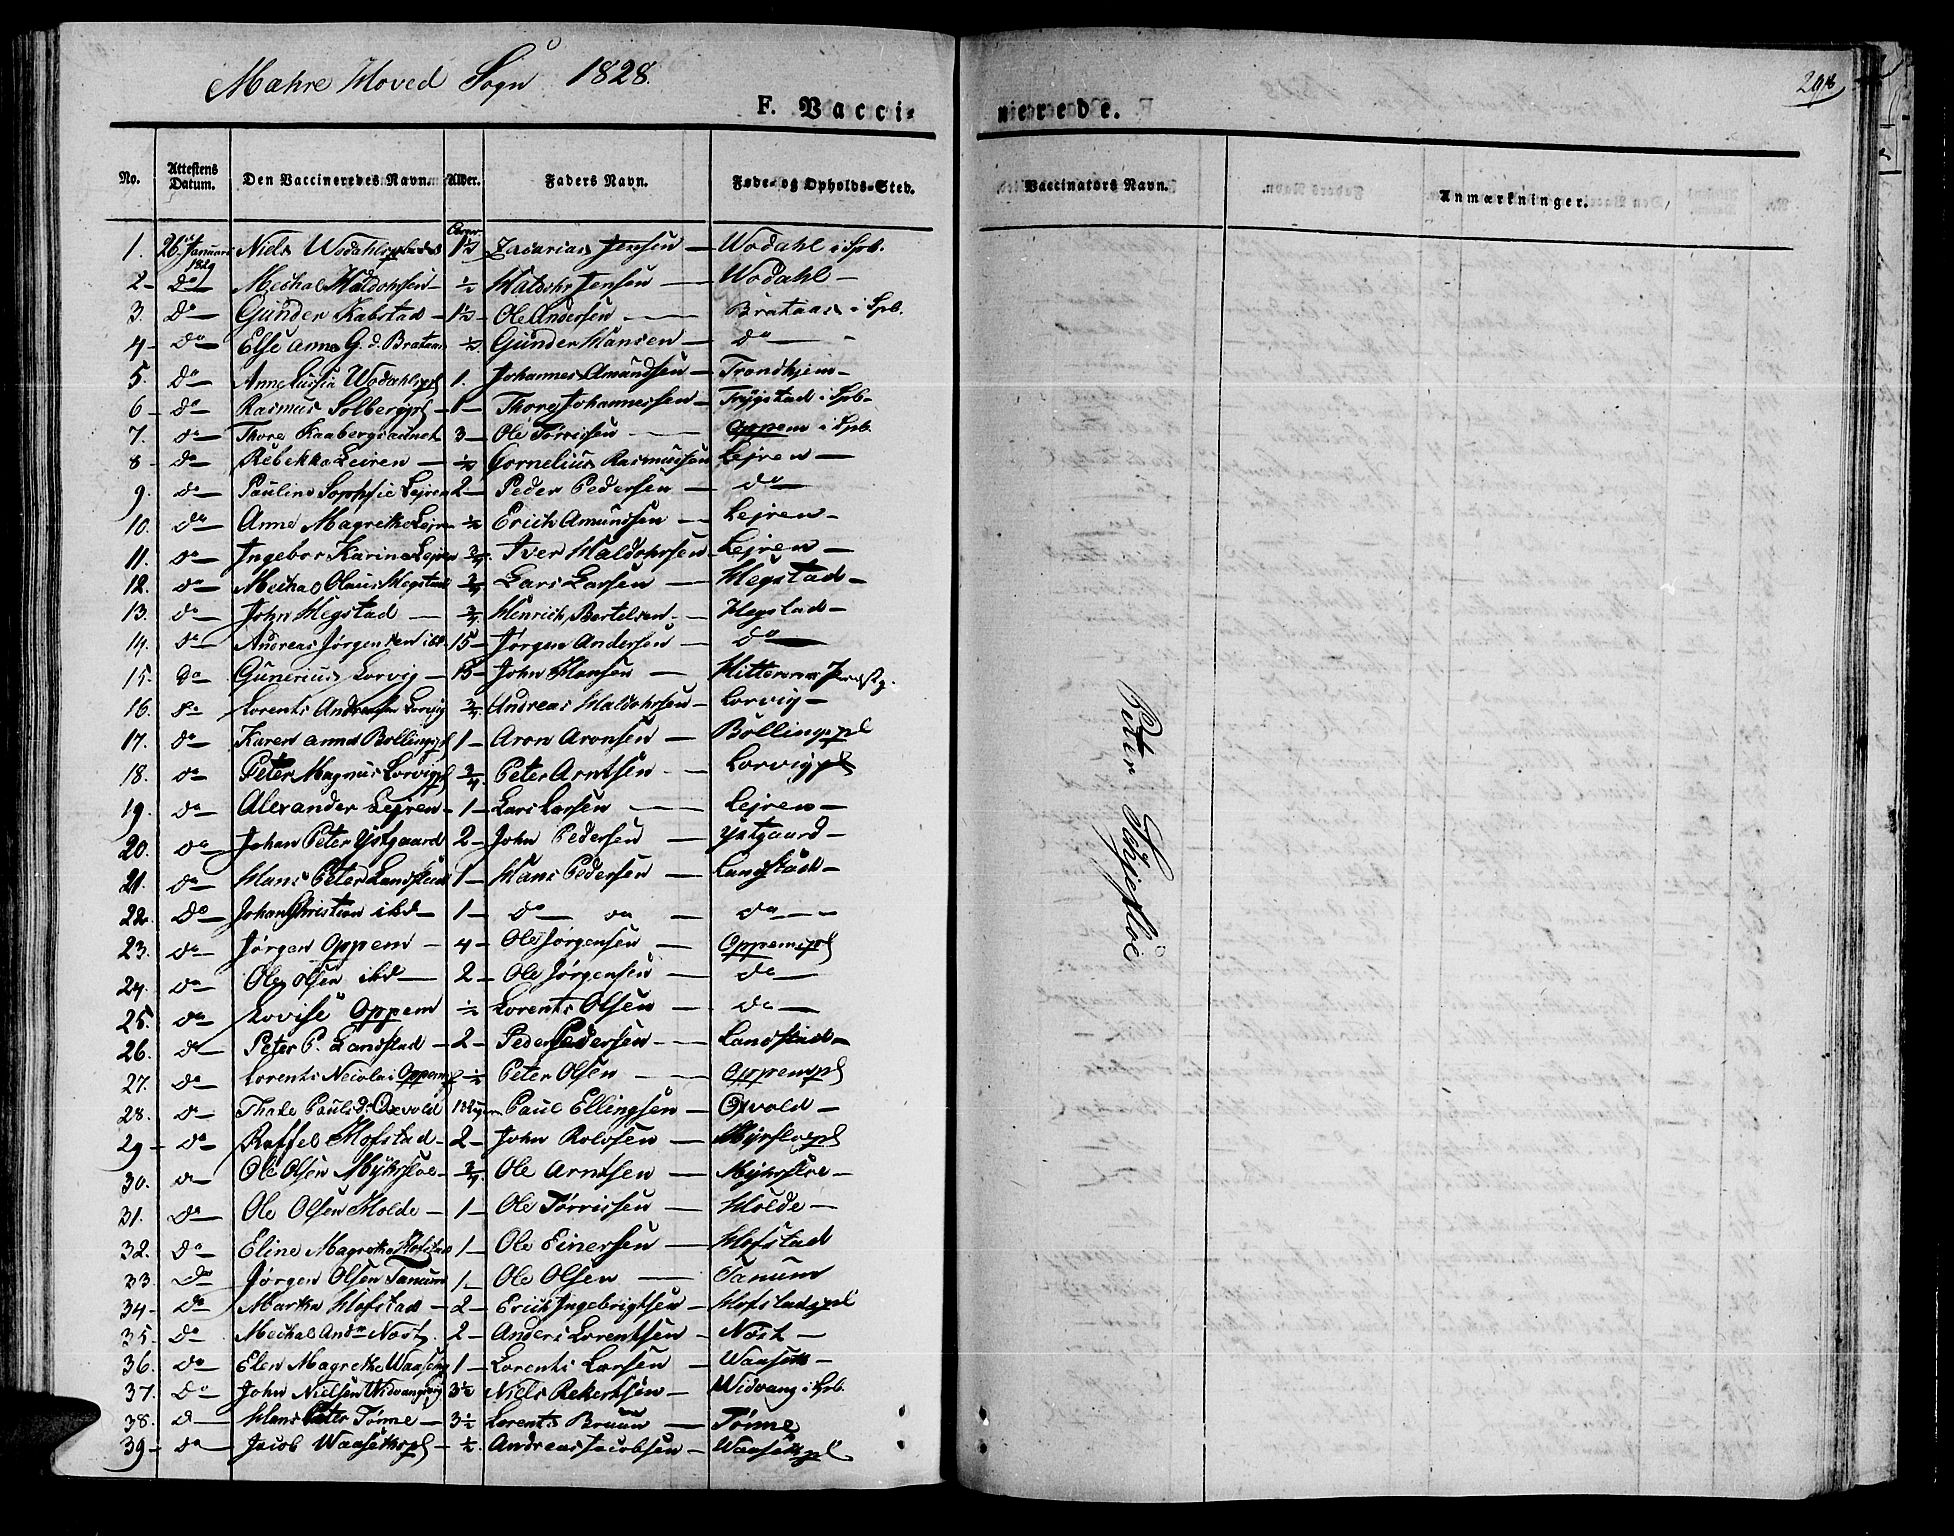 Mæhre Hoved Sogn 1828.
298
F. Vacci-
nierede.
No. Attestens Datum. Den Vaccineredes Navn. Alder. Faders Navn. Føde- og Opholds-Sted. Vaccinators Navn. Anmærkninger.
1. 26 Januari 1829 Niels Wodahl 1½ Zacarias Jensen — Wodahl i Spb.
2 - Do Mechal Haldohrsen - ½ Haldohr Jensen — Wodahl —
3. Do — Gunder Kabstad - 1½ - Ole Andersen — Brataas i Spb.
4 - Do — Else Anna G. d. Brataas ½ Gunder Hansen — do —
5. Do — Anne Lussia Wodahlspl 1. Johannes Amundsen — Trondhjem —
6 - Do — Rasmus Solbergpl - 1 - Thore Johannessen — Trygstad i Spb.
7. Do — Thore Kaabergsaunet 3 - Ole Tørrissen — Oppem i Spb.
8 - Do — Rebekka Leiren — ½ Cornelius Rasmussen Lejren —
9. Do — Pauline Sophie Lejren 2 - Peder Pedersen — do —
10. Do — Anne Magrethe Lejren ½ Erich Amundsen — Lejren —
11. Do — Ingebor Karina Lejren ¾ Iver Haldohrsen Lejren —
12. Do — Mechal Olaus Hegstad ¾ Lars Larsen — Hegstad —
13. Do — John Hegstad — ¾ Henrich Bertelsen — Hegstad —
14. Do — Andreas Jørgensen ibd. 15 - Jørgen Andersen — do —
15. Do — Gunerius Lorvig — 15 - John Hansen — Hitteren Præstg.
16. Do — Lorents Andreasen Lorvig ¾ Andreas Haldohrsen — Lorvig —
17. Do — Karen Anna Bollingspl 1 - Aron Aronsen — Böllingspl
18. Do — Peter Magnus Lorvigpl ¾ Peter Arntsen — Lorvigpl
19. Do — Alexander Lejren - 1 - Lars Larsen — Lejren —
20. Do — Johan Peter Ystgaard 2 - John Pedersen — Ystgaard —
21. Do — Hans Peter Landstad 1 - Hans Pedersen — Landstad —
22. Do — Johan Christian ibd — 1 - do do — do —
23. Do — Jørgen Oppem — 4 - Ole Jørgensen — Oppemspl
24. Do — Ole Olsen ibd — 2 - Ole Jørgensen — do —
25. Do — Lovise Oppem ½ Lorents Olsen — do —
26. Do — Peter P. Landstad - 2 - Peder Pedersen — Landstad —
27. Do — Lorents Necolai Oppemspl ½ Peter Olsen — Oppemspl
28. Do — Thale Pauls d: Oxvold Paul Ellingsen — Oxvold —
29 - Do — Raffel Hofstad - 2 - John Rolosen — Myrsloepl
30. Do — Ole Olsen Myhrsloe - ¾ Ole Arntsen — Myhrsloe —
31. Do — Ole Olsen Holde — 1 - Ole Tørrissen — Holde —
32. Do — Eline Magretha Hofstad 1 - Ole Einersen — Hofstad
33. Do — Jørgen Olsen Tanum 1 - Ole Olsen — Tanum
34 - Do — Martha Hofstad - 2 - Erich Ingebrigtsen — Hofstadspl
35 - Do — Mechal Andrn Nøst 2 - Anders Lorentsen — Nøst —
36. Do — Elen Magretha Waaseng 1 - Lorents Larsen — —
37. Do — John Nielsen Widvang 3½ Niels Rekertsen — Widvang i Spb.
38. Do — Hans Peter Tønne — 3½ Lorents Bruun — Tønne
39 - Do — Jacob - ½. Andreas Jacobsen —
Peter Schjefloe